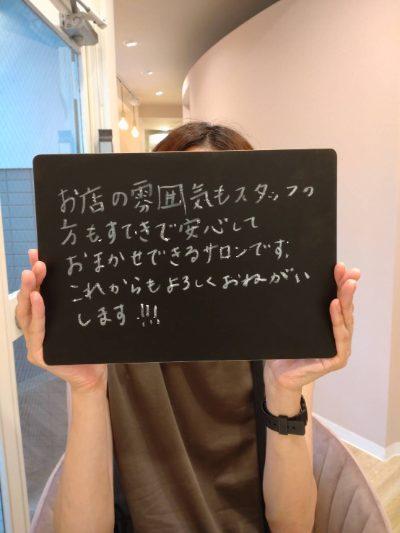 お店の雰囲気もスタッフの
方もすてきで安心して
おまかせできるサロンです。
これからもよろしくおねがい
します!!!